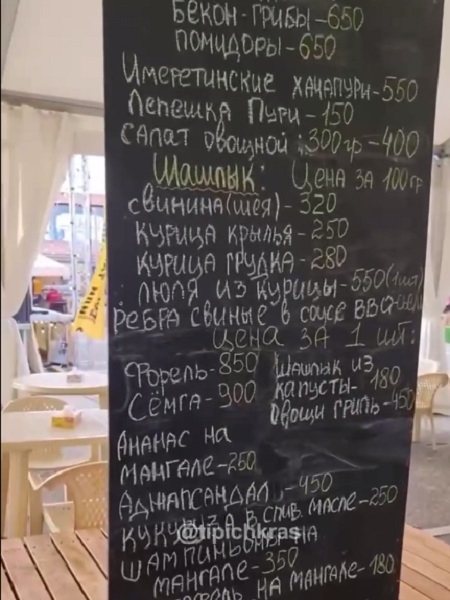 БЕКОН-ГРИБЫ-650
ПОМИДОРЫ-650
ИМЕРЕТИНСКИЕ ХАЧАПУРИ-550
ЛЕПЕШКА ПУРИ-150
САЛАТ ОВОЩНОЙ: 300гр-400
ШАШЛЫК: ЦЕНА ЗА 100гр
СВИНИНА(ШЕЯ)-320
КУРИЦА КРЫЛЬЯ-250
КУРИЦА ГРУДКА-280
ЛЮЛЯ ИЗ КУРИЦЫ-550(1шт)
РЕБРА СВИНЫЕ В СОУСЕ
ЦЕНА ЗА 1 ШТ:
ФОРЕЛЬ-850
СЁМГА-900
ШАШЛЫК ИЗ
КАПУСТЫ-180
ОВОЩИ ГРИЛЬ-450
АНАНАС НА
МАНГАЛЕ-250
АДЖАПСАНДАЛ-450
КУКУРУЗА В СЛИВ. МАСЛЕ-250
ШАМПИНЬОНЫ НА
МАНГАЛЕ-350
НА МАНГАЛЕ-180
@tipichkras